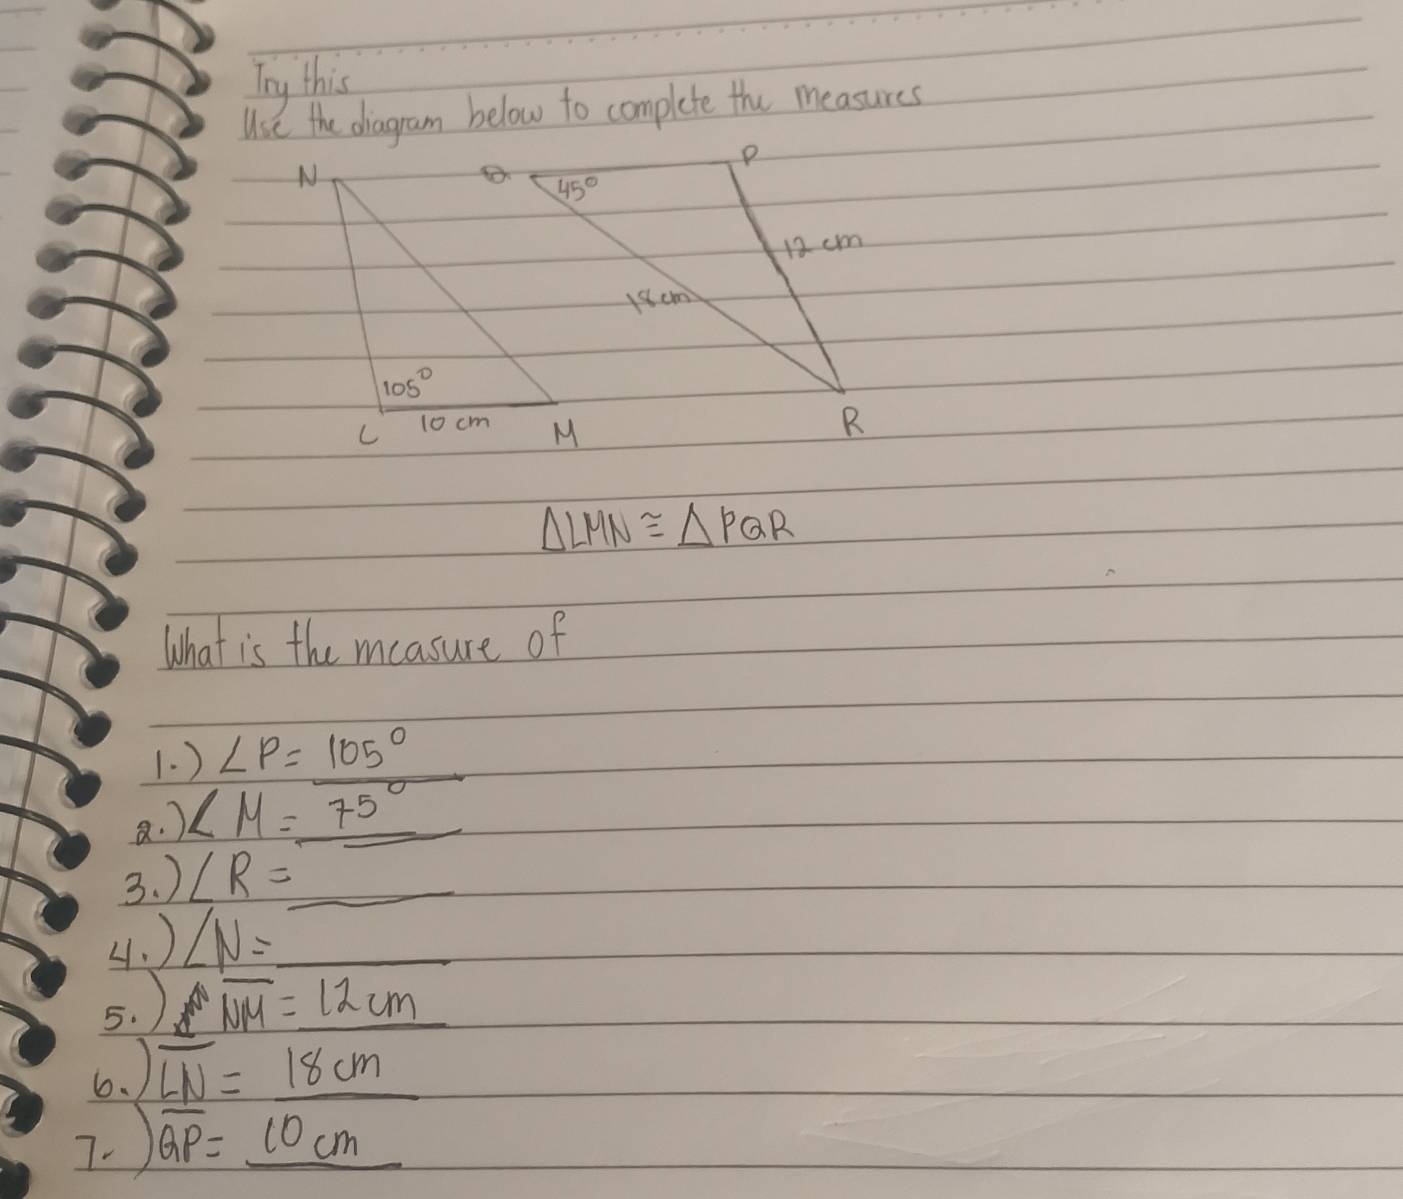 Try this
Use the diagram below to complete the measures
N Q 45° P
12 cm
18 cm
105°
L 10 cm M R
△LMN ≅ △PQR
What is the measure of
1.) ∠P = 105°
2.) ∠M = 75°
3.) ∠R = ____
4.) ∠N = ____
5.) NM = 12 cm
6.) LN = 18 cm
7.) QP = 10 cm